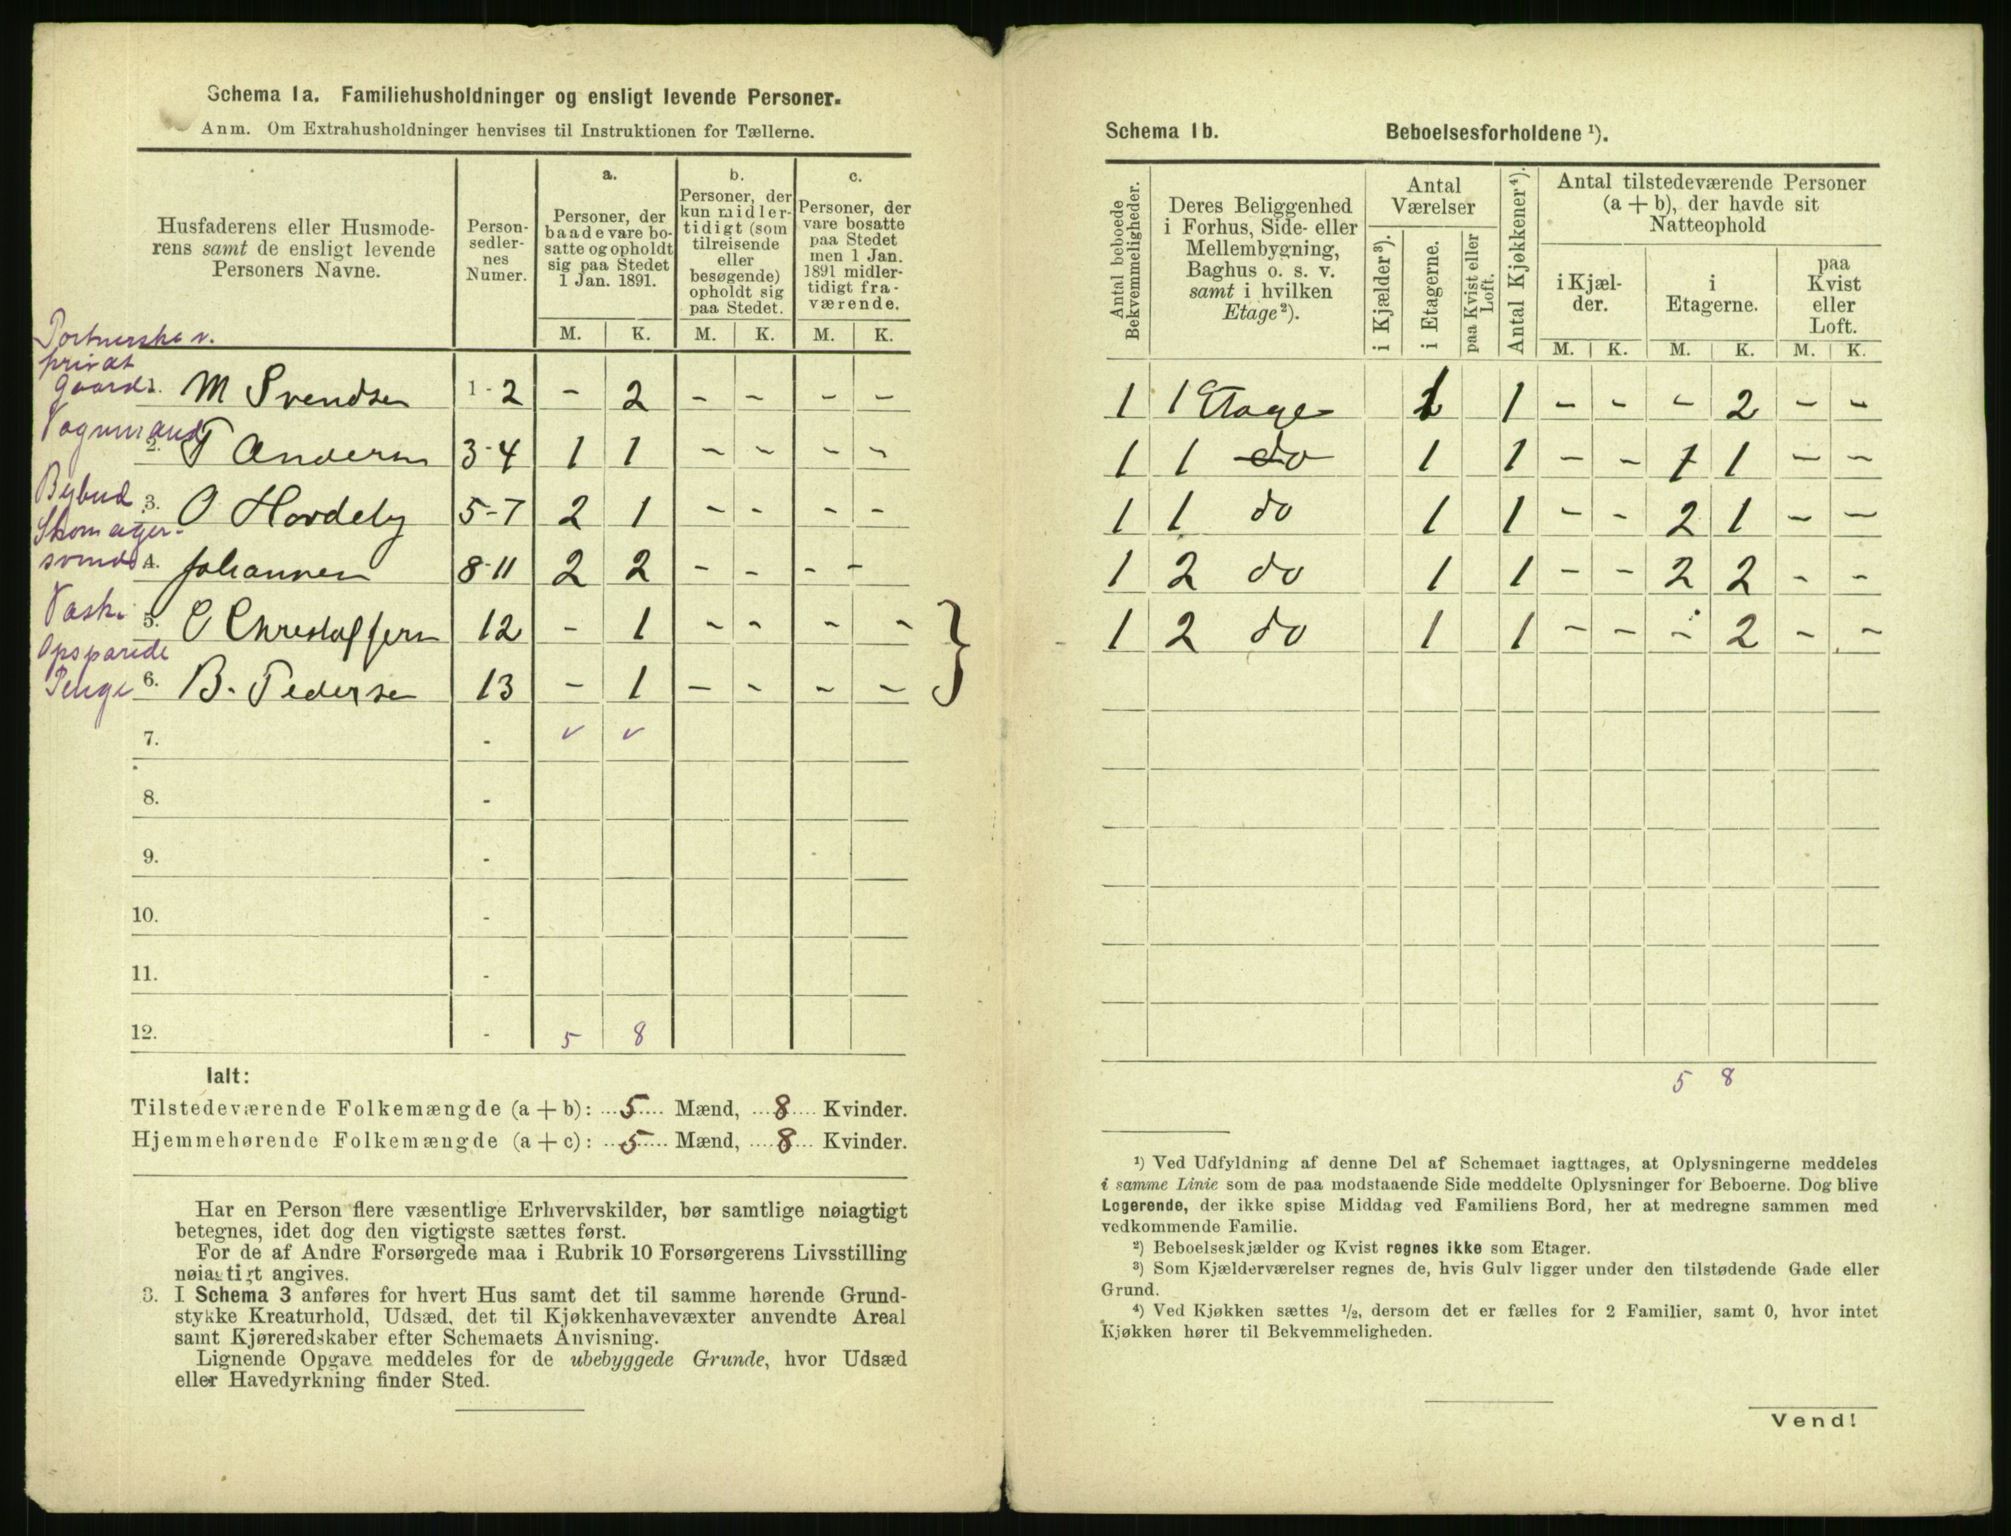 Schema 1a. Familiehusholdninger og ensligt levende Personer.
Anm. Om Extrahusholdninger henvises til Instruktionen for Tællerne.
Husfaderens eller Husmode-
rens samt de ensligt levende
Personers Navne.
Person-
sedler-
nes
Numer.
a.
Personer, der
baade vare bo-
satte og opholdt
sig paa Stedet
1 Jan. 1891.
b.
Personer, der
kun midler-
tidigt (som
tilreisende
eller
besøgende)
opholdt sig
paa Stedet.
c.
Personer, der
vare bosatte
paa Stedet
men 1 Jan.
1891 midler-
tidigt fra-
værende.
M. K. M. K. M. K.
Portnerske v.
privat
Gaards. M Svendsen 1-2 - 2 - - - -
Vognmand
2. T Andersen 3-4 1 1 - - - -
Bybud 3. O Hordeby 5-7 2 1 - - - -
Skomager-
svend 4. Johannesen 8-11 2 2 - - - -
Vask.
5. C Christoffersen 12 - 1 - - - -
Opsparede
Penge 6. B. Pedersen 13 - 1 - - - -
7. - v v
8. -
9. -
10. -
11. -
12. - 5 8
Ialt:
Tilstedeværende Folkemængde (a + b): 5 Mænd, 8 Kvinder.
Hjemmehørende Folkemængde (a + c): 5 Mænd, 8 Kvinder.
Har en Person flere væsentlige Erhvervskilder, bør samtlige nøiagtigt
betegnes, idet dog den vigtigste sættes først.
For de af Andre Forsørgede maa i Rubrik 10 Forsørgerens Livsstilling
nøiagtigt angives.
3. I Schema 3 anføres for hvert Hus samt det til samme hørende Grund-
stykke Kreaturhold, Udsæd, det til Kjøkkenhavevæxter anvendte Areal
samt Kjøreredskaber efter Schemaets Anvisning.
Lignende Opgave meddeles for de ubebyggede Grunde, hvor Udsæd
eller Havedyrkning finder Sted.
Schema 1b. Beboelsesforholdene ¹).
Antal beboede
Bekvemmeligheder.
Deres Beliggenhed
i Forhus, Side- eller
Mellembygning,
Baghus o. s. v.
samt i hvilken
Etage²).
Antal
Værelser
i Kjælder³).
i Etagerne.
paa Kvist eller
Loft.
Antal Kjøkkener⁴).
Antal tilstedeværende Personer
(a + b), der havde sit
Natteophold
i Kjæl-
der.
i
Etagerne.
paa
Kvist
eller
Loft.
M. K. M. K. M. K.
1 1 Etage 1 1 - - - 2 - -
1 1 do 1 1 - - 1 1 - -
1 1 do 1 1 - - 2 1 - -
1 2 do 1 1 - - 2 2 - -
1 2 do 1 1 - - - 2 - -
5 8
¹) Ved Udfyldning af denne Del af Schemaet iagttages, at Oplysningerne meddeles
i samme Linie som de paa modstaaende Side meddelte Oplysninger for Beboerne. Dog blive
Logerende, der ikke spise Middag ved Familiens Bord, her at medregne sammen med
vedkommende Familie.
²) Beboelseskjælder og Kvist regnes ikke som Etager.
³) Som Kjælderværelser regnes de, hvis Gulv ligger under den tilstødende Gade eller
Grund.
⁴) Ved Kjøkken sættes ½, dersom det er fælles for 2 Familier, samt 0, hvor intet
Kjøkken hører til Bekvemmeligheden.
Vend!